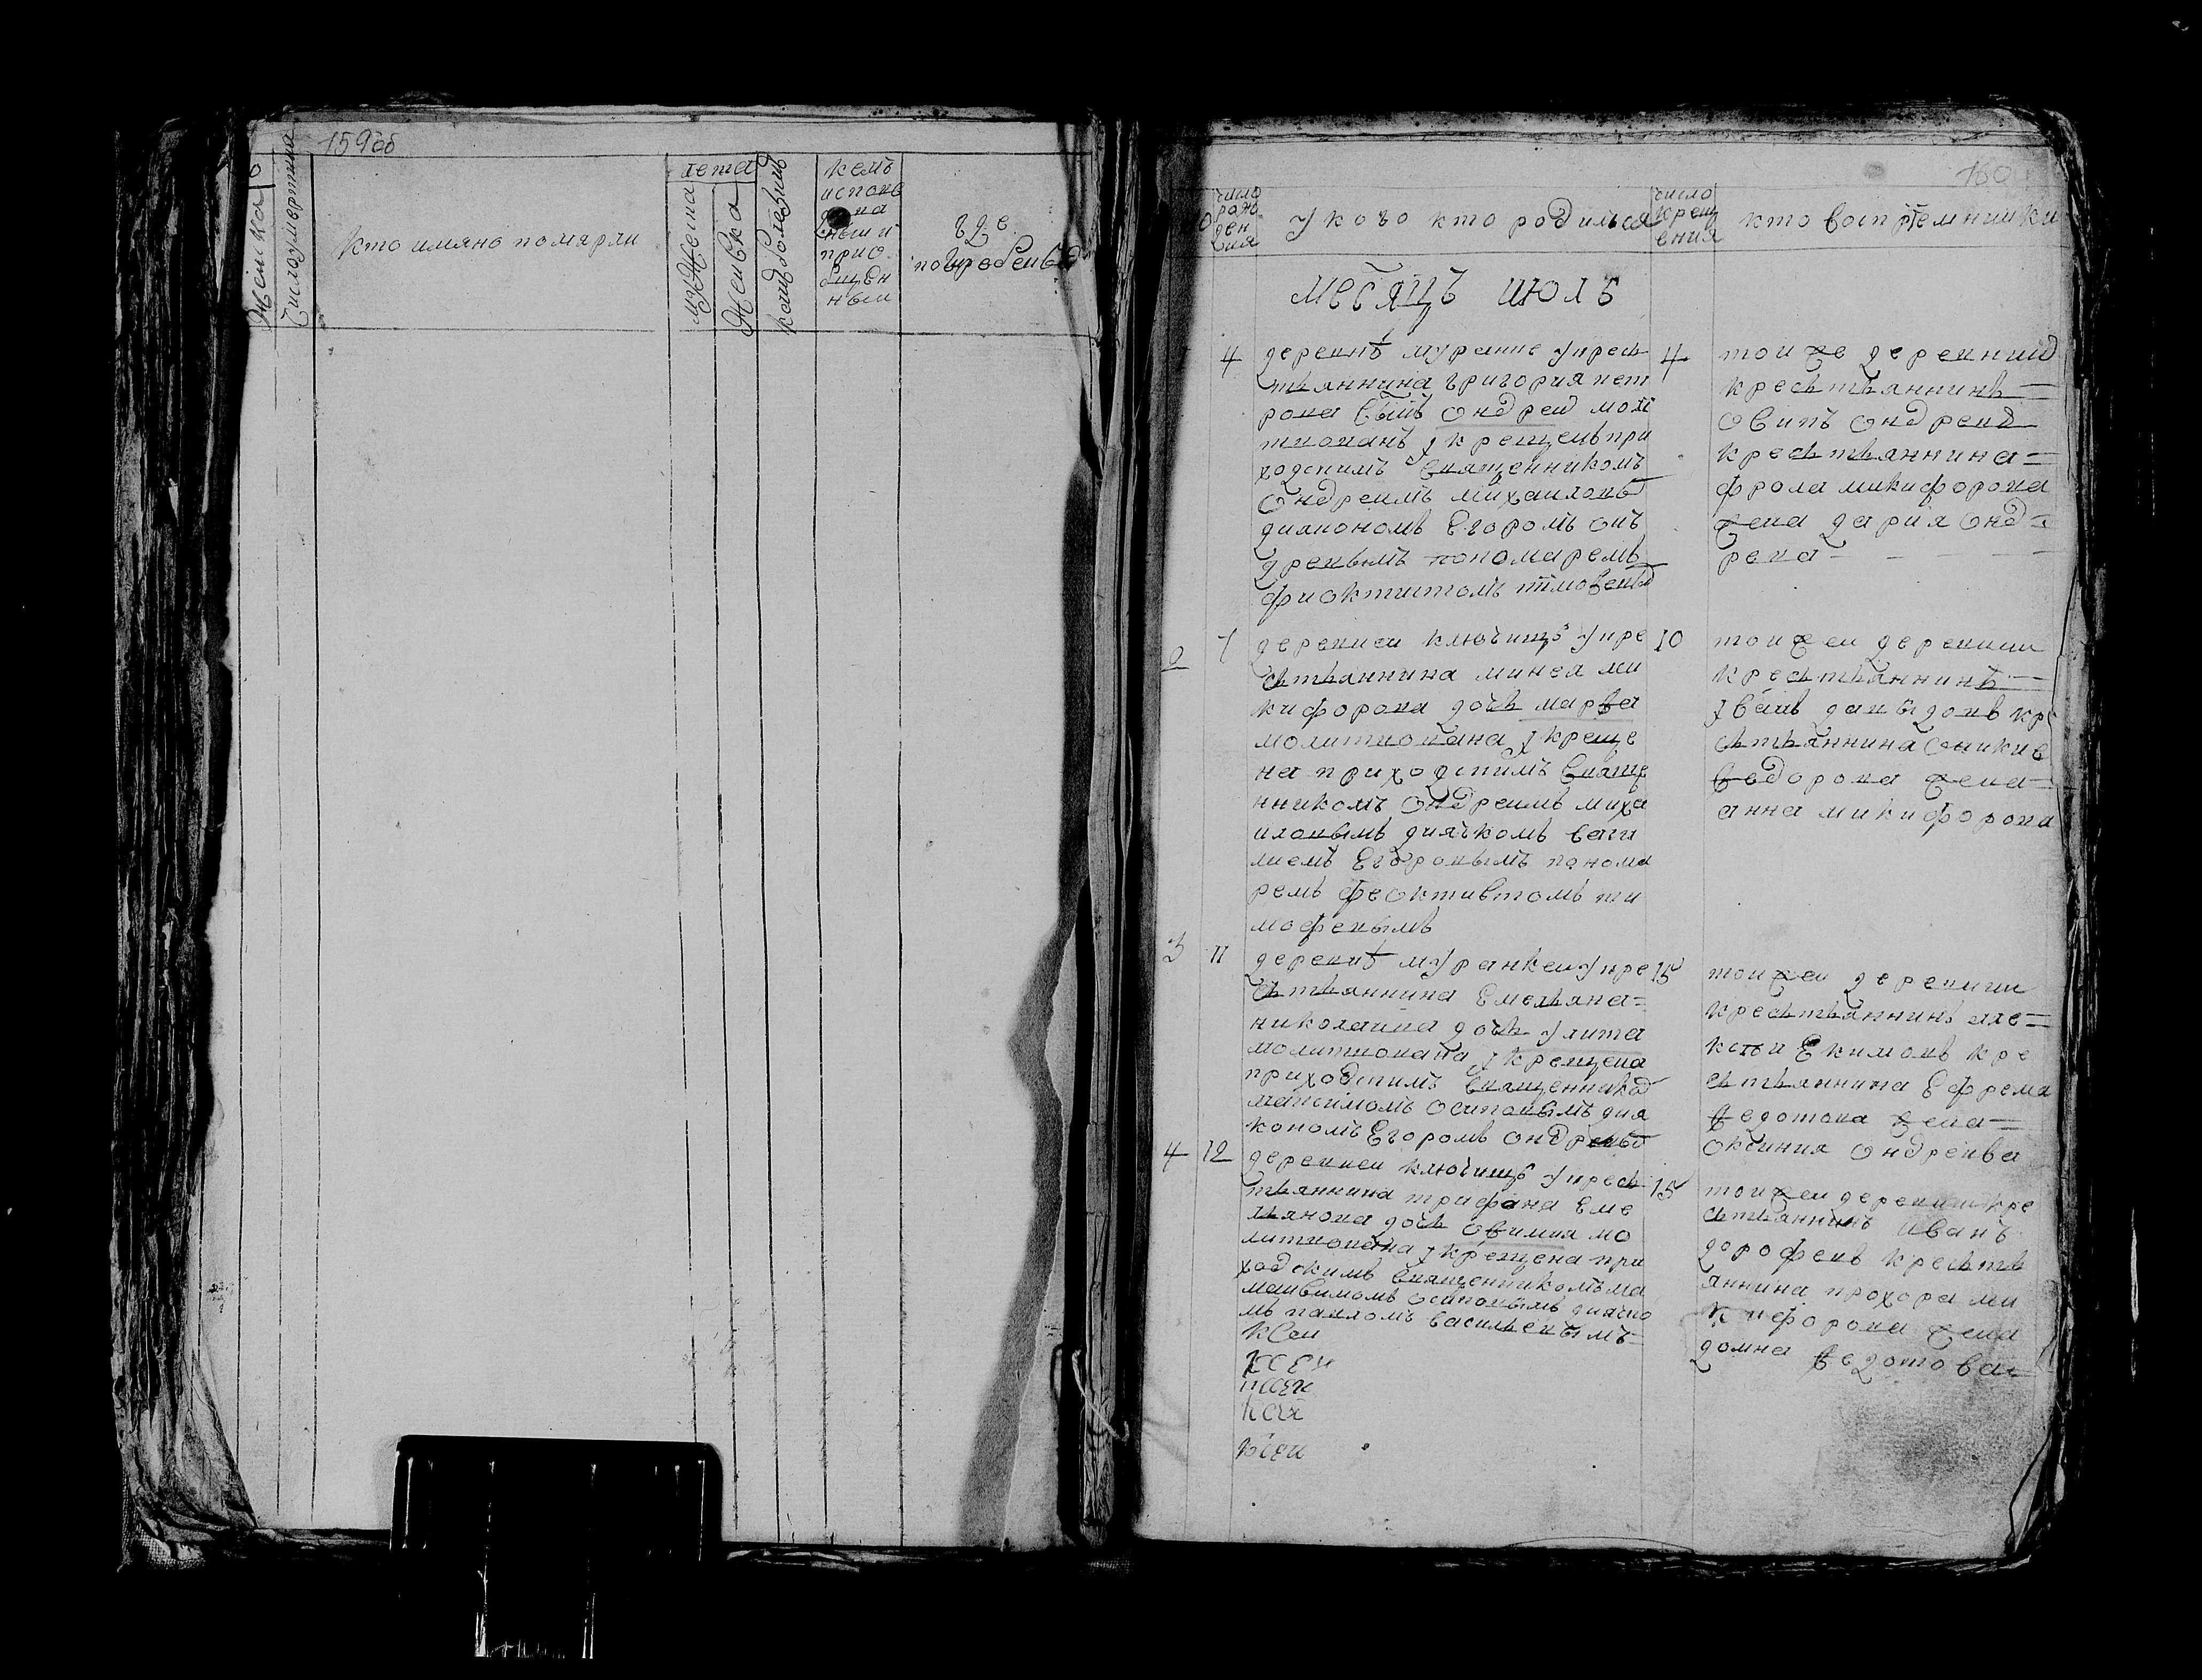 159об
Женска
Число умертвиа
Кто имяно померли
лета
мужепа
Женска
кемъ
где
160
число
рож
ден
ия
У ково кто родился
число
крещ
ения
кто воспрiемники
месяцъ июль
4
деревнѣ муранке у крес
тьяннина григория пет
рова сынъ Ондреи мол
твованъ i крещенъ при
ходскимъ священникомъ
Ондреимъ михаиловы
дияконом Егоромъ он
древымъ пономаремъ
фиоктистомъ
4
тои же деревнии
кресьтьяннинъ
Осипъ Ондреив
кресьтьяннина
фрола микифорова
жена дария Онд
рева
7
деревнеи ключищѣ у кре
сьтьяннина минея ми
кифорова дочь марва
молитвована i креще
на приходскимъ свяще
нникомъ Ондреимъ миха
иловымъ диячкомъ васи
лиемъ Егоровымъ понома
ремъ феоктистомъ ти
мофевымъ
10
тои жеи деревнии
кресьтьяннинъ
iванъ давыдовъ кре
сьтьяннина Оникие
ведорова жена
анна микифорова
3
11
деревнѣ муранкеи у кре
сьтьяннина Емельяна
николаива дочь улита
молитвована i крещена
приходскимъ священнико
максимомъ осиповымъ дия
кономъ Егоромъ Ондревы
15
тои жеи деревнии
кресьтьяннинъ але
ксѣи Екимовъ кре
сьтьяннина Ефрема
ведотова жена
оксиния Ондреива
4
12
деревнеи ключищѣ у кресь
тьяннина трифона Еме
льянова дочь овимия мо
литвована i крещена при
ходскимъ священникомъ ма
ксимомъ осиповымъ диячко
мъ павломъ васильевымъ
15
тои жеи деревнии кре
сьтьяннинъ иванъ
дорофеивъ кресьть
яннина прохора ми
кифорова жена
домна ведотова